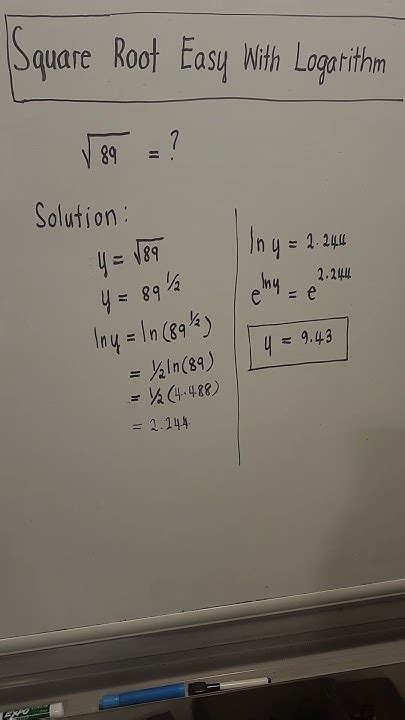 Square Root Easy With Logarithm
√89 = ?
Solution:
y = √89
y = 89^1/2
ln y = ln(89^1/2)
= 1/2 ln(89)
= 1/2 (4.488)
= 2.244
ln y = 2.244
e^ln y = e^2.244
y = 9.43
EXPO